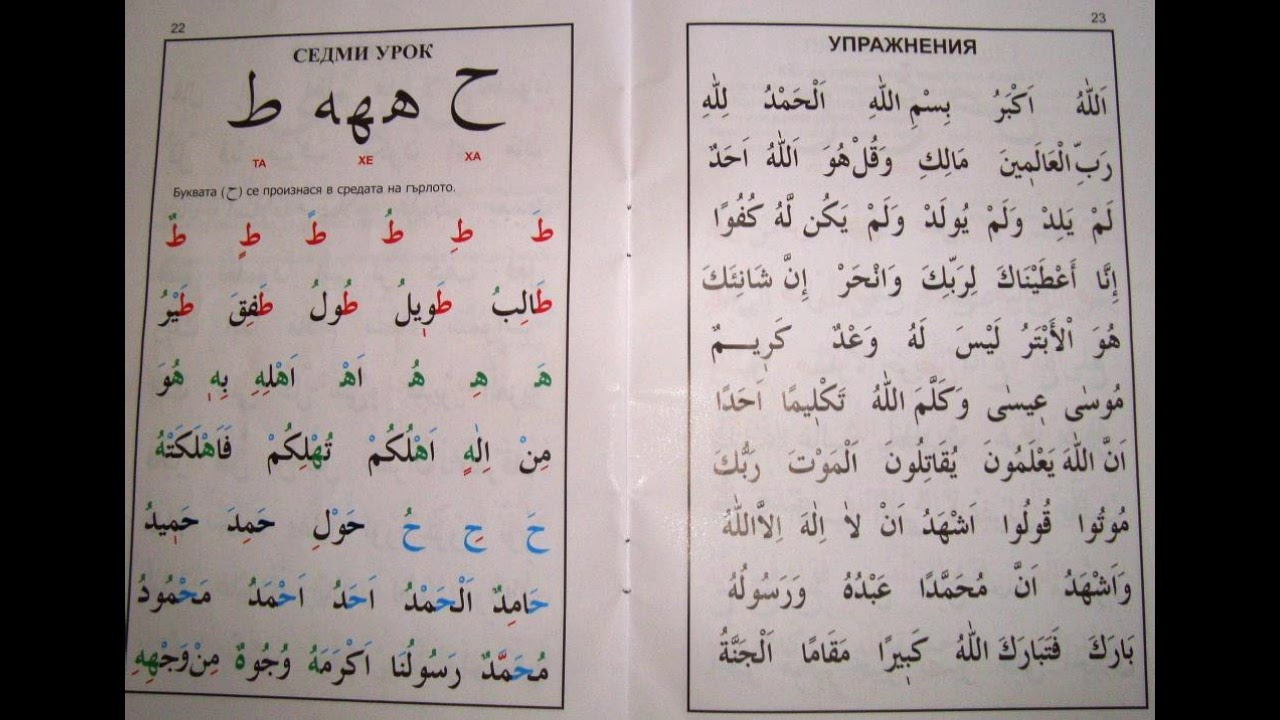 22
СЕДМИ УРОК
ح ههه ط
ТА ХЕ ХА
Буквата (ح) се произнася в средата на гърлото.
طَ طِ طُ طً طٍ طٌ
طَالِبُ طَوِيلُ طُولُ طَفِقَ طَيْرُ
هَ هِ هُ اَهْ اَهْلِهِ بِهِ هُوَ
مِنْ اِلٰهٍ اَهْلُكُمْ تُهْلِكُمْ فَاَهْلَكَتْهُ
حَ حِ حُ حَوْلِ حَمِدَ حَمِيدُ
حَامِدٌ اَلْحَمْدُ اَحَدُ اَحْمَدُ مَحْمُودُ
مُحَمَّدٌ رَسُولُنَا اَكْرَمَهُ وُجُوهٌ مِنْ وَجْهِهِ
23
УПРАЖНЕНИЯ
اَللّٰهُ اَكْبَرُ بِسْمِ اللّٰهِ اَلْحَمْدُ لِلّٰهِ
رَبِّ الْعَالَمِينَ مَالِكِ وَقُلْ هُوَ اَللّٰهُ اَحَدٌ
لَمْ يَلِدْ وَلَمْ يُولَدْ وَلَمْ يَكُن لَّهُ كُفُوًا
إِنَّا أَعْطَيْنَاكَ لِرَبِّكَ وَانْحَرْ إِنَّ شَانِئَكَ
هُوَ الْأَبْتَرُ لَيْسَ لَهُ وَعْدٌ كَرِيـــمٌ
مُوسٰى عِيسٰى وَكَلَّمَ اللّٰهُ تَكْلِيمًا اَحَدًا
اَنَّ اللّٰهَ يَعْلَمُونَ يُقَاتِلُونَ الْمَوْتَ رَبُّكَ
مُوتُوا قُولُوا اَشْهَدُ اَنْ لاٰ اِلٰهَ اِلاَّ اللّٰهُ
وَاَشْهَدُ اَنَّ مُحَمَّدًا عَبْدُهُ وَرَسُولُهُ
بَارَكَ فَتَبَارَكَ اللّٰهُ كَبِيرًا مَقَامًا اَلْجَنَّةُ